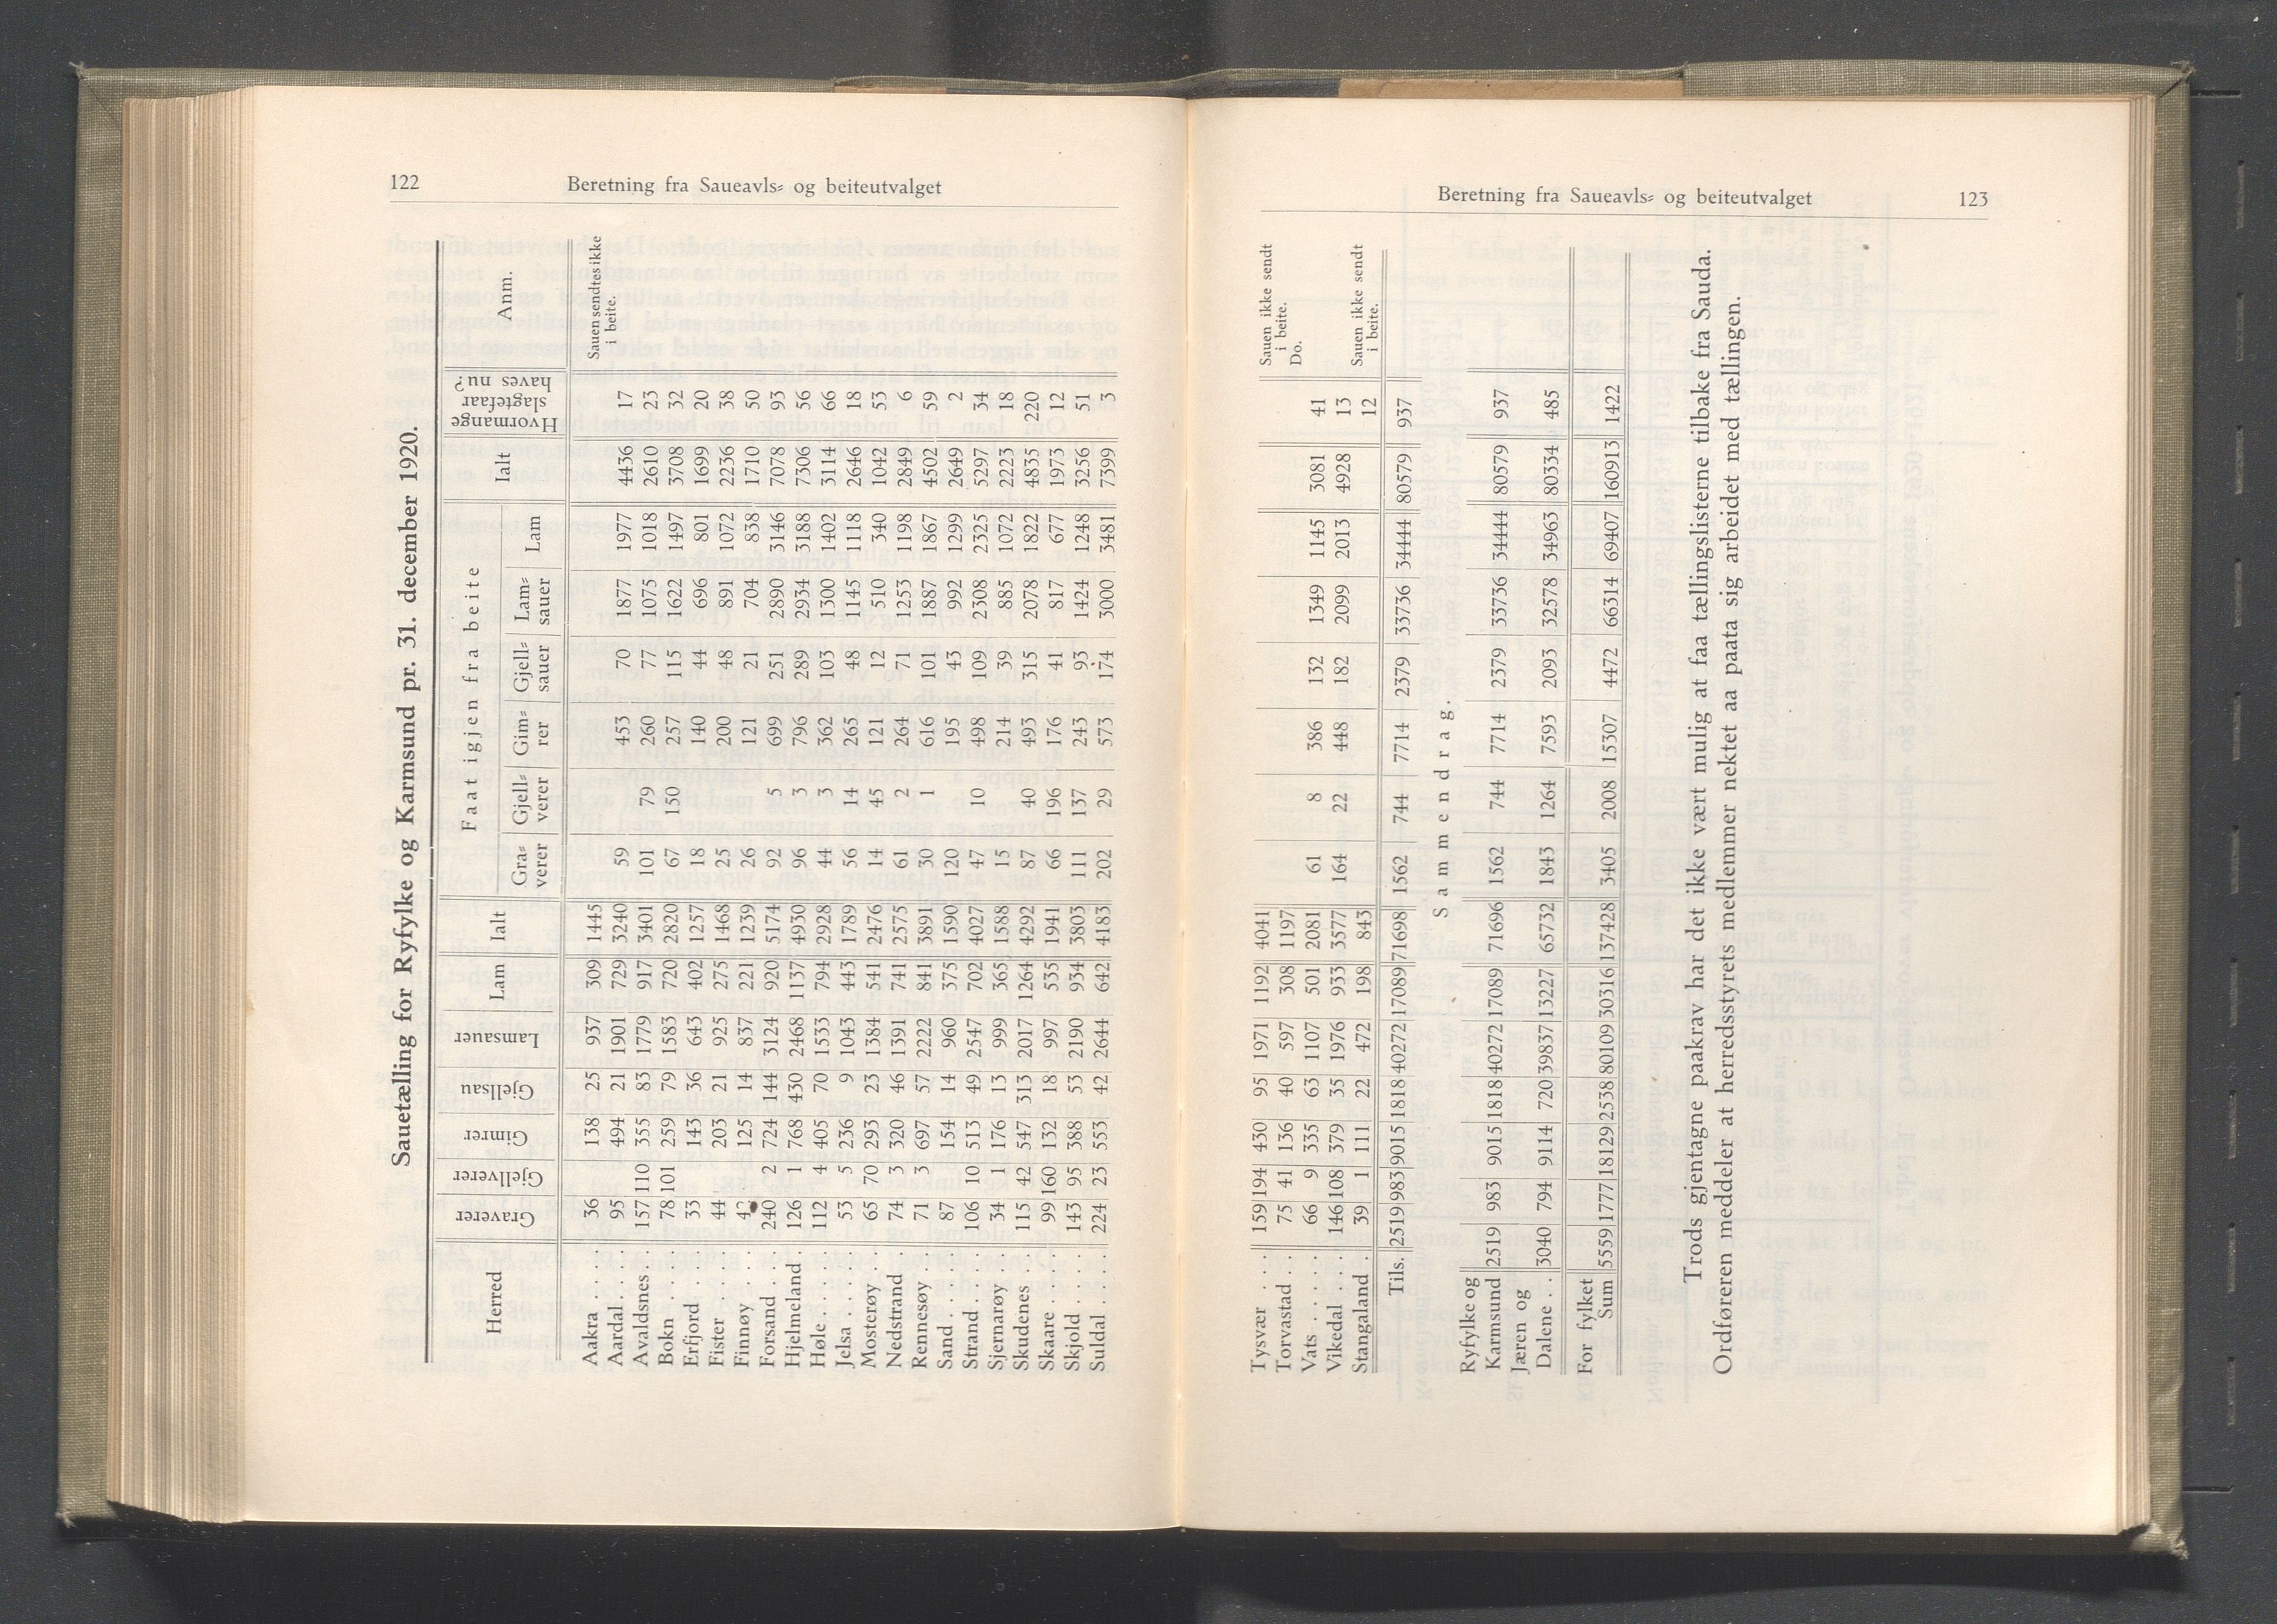 122
Beretning fra Saueavls= og beiteutvalget
Sauetælling for Ryfylke og Karmsund pr. 31. december 1920.
Herred Graverer Gjellverer Gimrer Gjellsau Lamsauer Lam Ialt Faat igjen fra beite Ialt Hvormange slagtefaar haves nu? Anm.
Gra=verer Gjell=verer Gim=rer Gjell=sauer Lam=sauer Lam
Aakra . . . . 36 138 25 937 309 1445 Sauen sendtes ikke i beite.
Aardal . . . . 95 494 21 1901 729 3240 59 453 70 1877 1977 4436 17
Avaldsnes . . 157 110 355 83 1779 917 3401 101 79 260 77 1075 1018 2610 23
Bokn . . . . 78 101 259 79 1583 720 2820 67 150 257 115 1622 1497 3708 32
Erfjord . . . 33 143 36 643 402 1257 18 140 44 696 801 1699 20
Fister . . . . 44 203 21 925 275 1468 25 200 48 891 1072 2236 38
Finnøy . . . 125 14 837 221 1239 26 121 21 704 838 1710 50
Forsand . . . 240 2 724 144 3124 920 5174 92 5 699 251 2890 3146 7078 93
Hjelmeland . 126 1 768 430 2468 1137 4930 96 3 796 289 2934 3188 7306 56
Høle . . . . 112 4 405 70 1533 794 2928 44 3 362 103 1300 1402 3114 66
Jelsa . . . . 53 5 236 9 1043 443 1789 56 14 265 48 1145 1118 2646 18
Mosterøy . . 65 70 293 23 1384 541 2476 14 45 121 12 510 340 1042 53
Nedstrand . 74 3 320 46 1391 741 2575 61 2 264 71 1253 1198 2849 6
Rennesøy . . 71 3 697 57 2222 841 3891 30 1 616 101 1887 1867 4502 59
Sand . . . . 87 154 14 960 375 1590 120 195 43 992 1299 2649 2
Strand . . . . 106 10 513 49 2547 702 4027 47 10 498 109 2308 2325 5297 34
Sjernarøy . . 34 1 176 13 999 365 1588 15 214 39 885 1072 2223 18
Skudenes . . 115 42 547 313 2017 1264 4292 87 40 493 315 2078 1822 4835 220
Skaare . . . . 99 160 132 18 997 535 1941 66 196 176 41 817 677 1973 12
Skjold . . . . 143 95 388 53 2190 934 3803 111 137 243 93 1424 1248 3256 51
Suldal . . . . 224 23 553 42 2644 642 4183 202 29 573 174 3000 3481 7399 3
Beretning fra Saueavls= og beiteutvalget
123
Tysvær . . . 159 194 430 95 1971 1192 4041 Sauen ikke sendt i beite.
Torvastad . . 75 41 136 40 597 308 1197 Do.
Vats . . . . . 66 9 335 63 1107 501 2081 61 8 386 132 1349 1145 3081 41
Vikedal . . . 146 108 379 35 1976 933 3577 164 22 448 182 2099 2013 4928 13
Stangaland . 39 1 111 22 472 198 843 12 Sauen ikke sendt i beite.
Tils. 2519 983 9015 1818 40272 17089 71698 1562 744 7714 2379 33736 34444 80579 937
Sammendrag.
Ryfylke og
Karmsund 2519 983 9015 1818 40272 17089 71696 1562 744 7714 2379 33736 34444 80579 937
Jæren og
Dalene . . 3040 794 9114 720 39837 13227 65732 1843 1264 7593 2093 32578 34963 80334 485
For fylket
Sum 5559 1777 18129 2538 80109 30316 137428 3405 2008 15307 4472 66314 69407 160913 1422
Trods gjentagne paakrav har det ikke vært mulig at faa tællingslisterne tilbake fra Sauda.
Ordføreren meddeler at herredsstyrets medlemmer nektet aa paata sig arbeidet med tællingen.